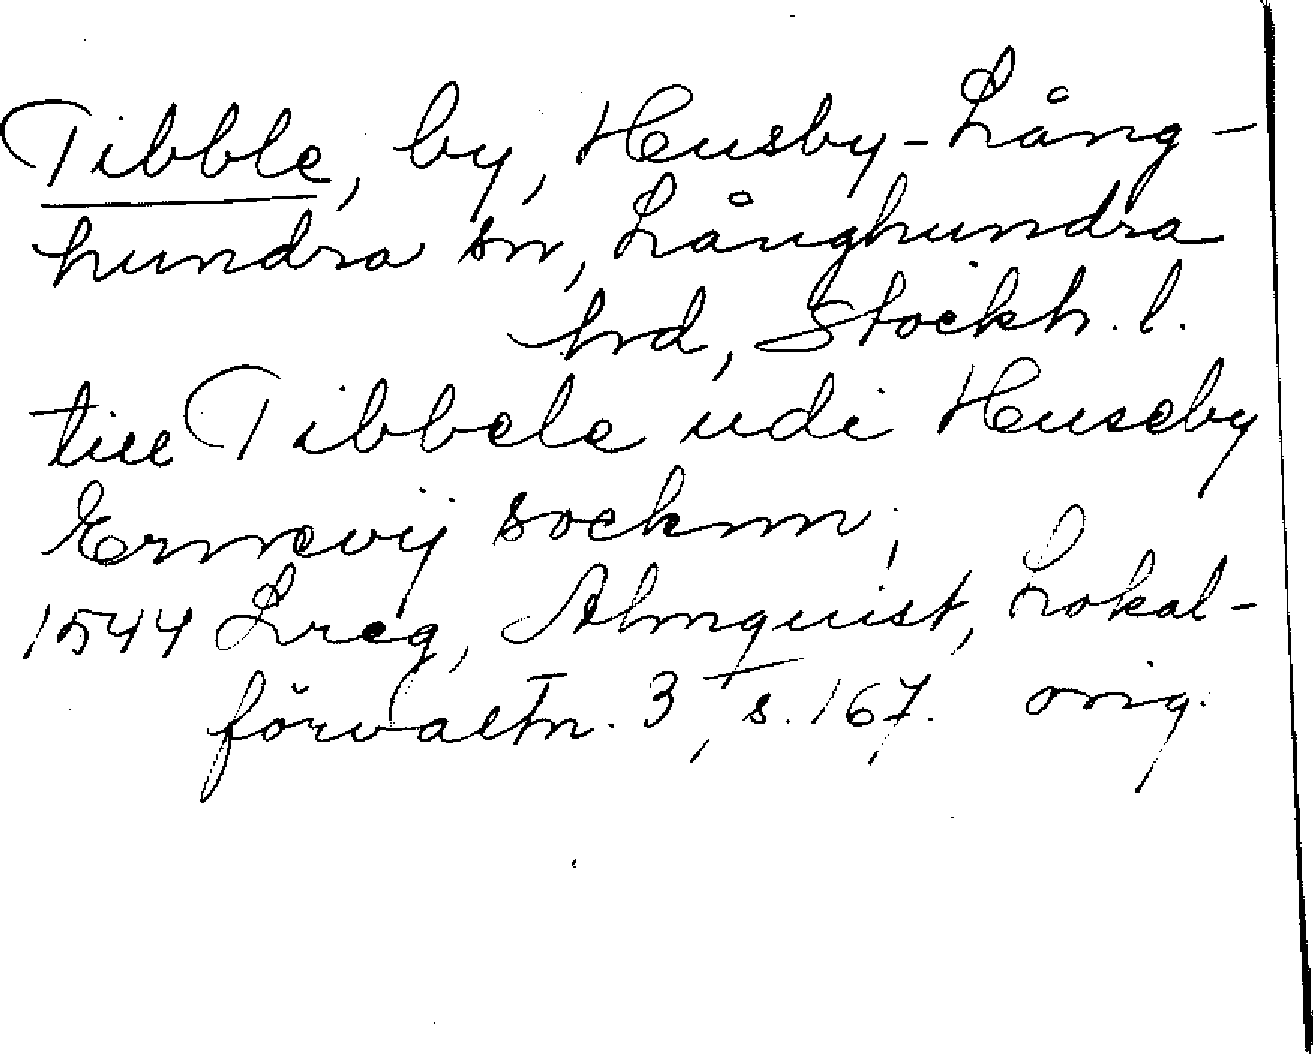 Tibble, by, Husby-Lång-
hundra sn, Långhundra
hrd, Stockh. l.
till Tibbele udi Huseby
Ernevij socknn;
1544 Lreg, Almquist, Lokal-
förvaltn. 3, s. 167. orig.